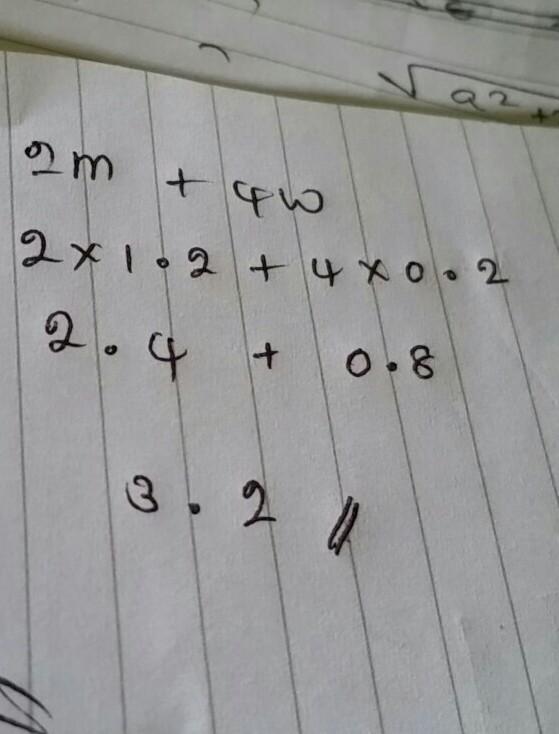 √a2 +
2m + 4w
2 × 1.2 + 4 × 0.2
2.4 + 0.8
3.2